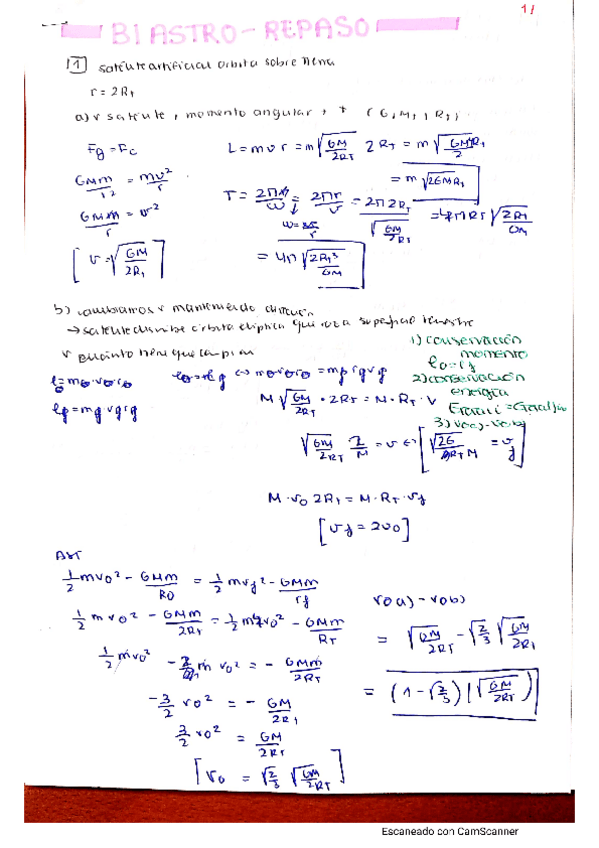 1/
BI ASTRO - REPASO
1 satélite artificial orbita sobre Tierra
r = 2RT
a) v satélite, momento angular, T (G, MT, RT)
Fg = Fc
L = mvr = m√(GM/2RT) 2RT = m
= m√(2GMRT)
GMm/r² = mv²/r
GMm/r = v²
[v = √(GM/2RT)]
T = 2π/ω = 2πr/v = 2π2RT/√(GM/2RT) = 4πRT√(2RT/GM)
= 4π√(2RT³/GM)
b) cambiamos v manteniendo dirección
→ satélite describe órbita elíptica que roza superficie terrestre
v cuánto tiene que cambiar
1) conservación momento
lo = lf
2) conservación energía
3) vo a) - vo b)
lo = mo·vo·ro
lo = lf ↔ movoro = mfvfrf
lf = mf vf rf
M√(GM/2RT) · 2RT = M·RT·V
M·vo 2RT = M·RT·vf
[vf = 2vo]
½mvo² - GMm/RO = ½mvf² - GMm/rf
½mvo² - GMm/2RT = ½m4vo² - GMm/RT
½mvo² - m vo² = - GMm/2RT
-3/2 vo² = - GM/2RT
3/2 vo² = GM/2RT
[vo = √(2/3) √(GM/2RT)]
vo a) - vo b)
= √(GM/2RT) - √(2/3) √(GM/2RT)
= (1 - √(2/3)) √(GM/2RT)
Escaneado con CamScanner